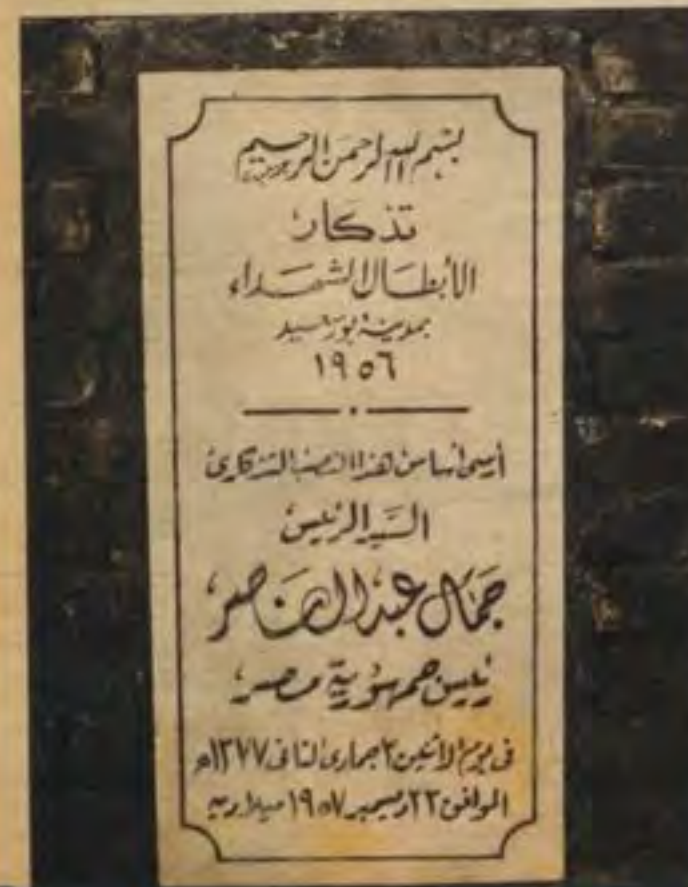 بسم الله الرحمن الرحيم
تذكار
الأبطال الشهداء
بمدينة بورسعيد
١٩٥٦
أرسى أساس هذا النصب التذكارى
السيد الرئيس
جمال عبد الناصر
رئيس جمهورية مصر
فى يوم الاثنين ٢ جمادى الثانى ١٣٧٧ه
الموافق ٢٣ ديسمبر ١٩٥٧ ميلاديه